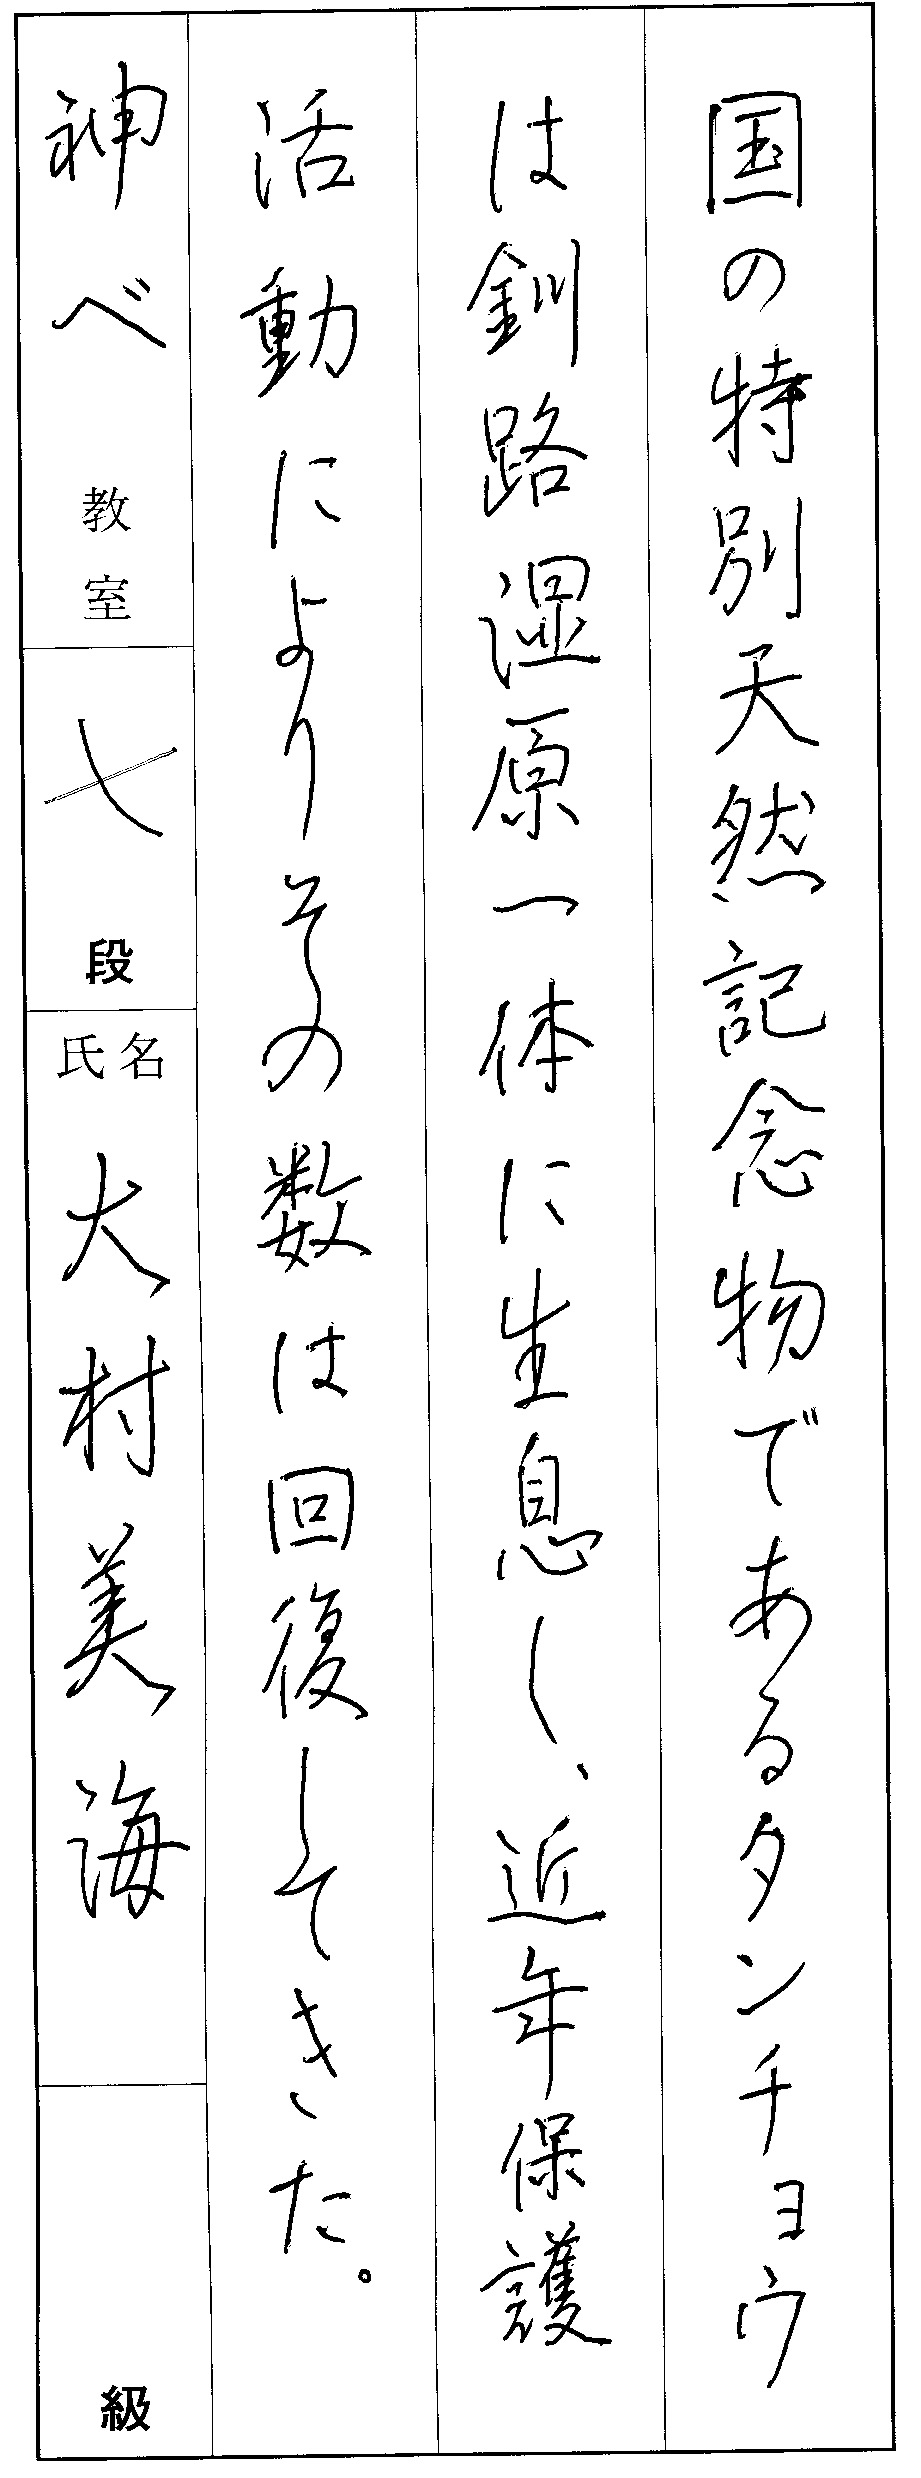 国の特別天然記念物であるタンチョウ
は釧路湿原一体に生息し、近年保護
活動によりその数は回復してきた。
神べ教室 七段 氏名 大村美海 級